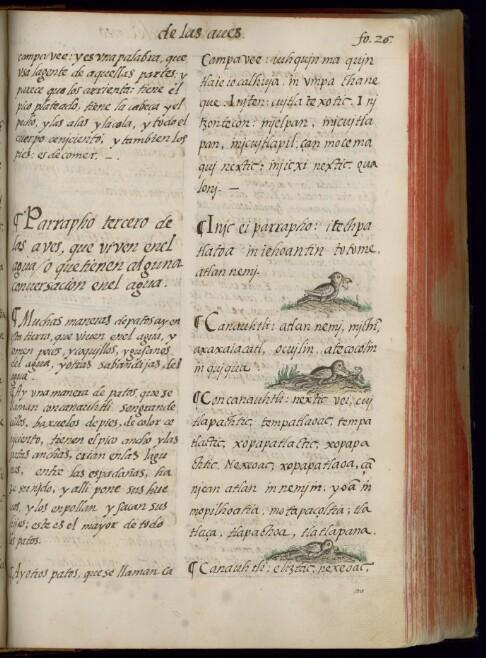 de las aues
fo. 26.
compa vee: y es vna palabra, que
vsa la gente de aquellas partes: y
parece que los carienta: tiene el
pico plateado, tiene la cabeça y el
pecho, y las alas y la cola, y todo el
cuerpo ceniciento, y tambien los
pies: es de comer. —.
¶ Parrapho tercero de
las aves, que viven en el
agua / o que tienen alguna
conuersacion en el agua.
¶ Muchas maneras de patos ay en
esta tierra, que viuen en el agua, y
comen peces, y coquillos, y gusanos
del agua, y otras sabandijas, del
agua.
¶ Ay vna manera de patos, que se
llaman concanauhtli: son grande
cillos, baxuelos de pies, de color ce
niciento, tienen el pico ancho y las
patas anchas, crian en las lagu
nas, entre las espadañas, ha
ze su nido, y alli pone sus hue
uos, y los enpollan y sacan sus
hijos; este es el mayor de todo
los patos.
¶ Ay otros patos, que se llaman ca
Compa vee: iuhquin ma quin
in vmpa chane
que. Inten: cuitlatexotic. In j
tzontecon: mjelpan, injcuitla
pan, injcuitlapil: çan mocemma
qui nextic: injicxi nextic. qua
lonj. —
¶ Injc ei parrapho: itechpa
tlatoa in iehoantin totome,
atlan nemj.
¶ Canauhtli: atlan nemj, michi,
axaxaiacatl, ocujlin, atecocolin
in quiqua
¶ Concanauhtli: nextic vei, cuj
tlapachtic, tempatlaoac, tempa
tlactic, xopapatlactic, xopapa
chtic. Nexeoac, xopapatlaoa, çã
njcan atlan in nemjm: yoã in
mopilhoatia, motapaçoltia: tla
tlaça, tlapachoa, tlatlapana.
¶ Canauhtli: eliztac, nexeoac,